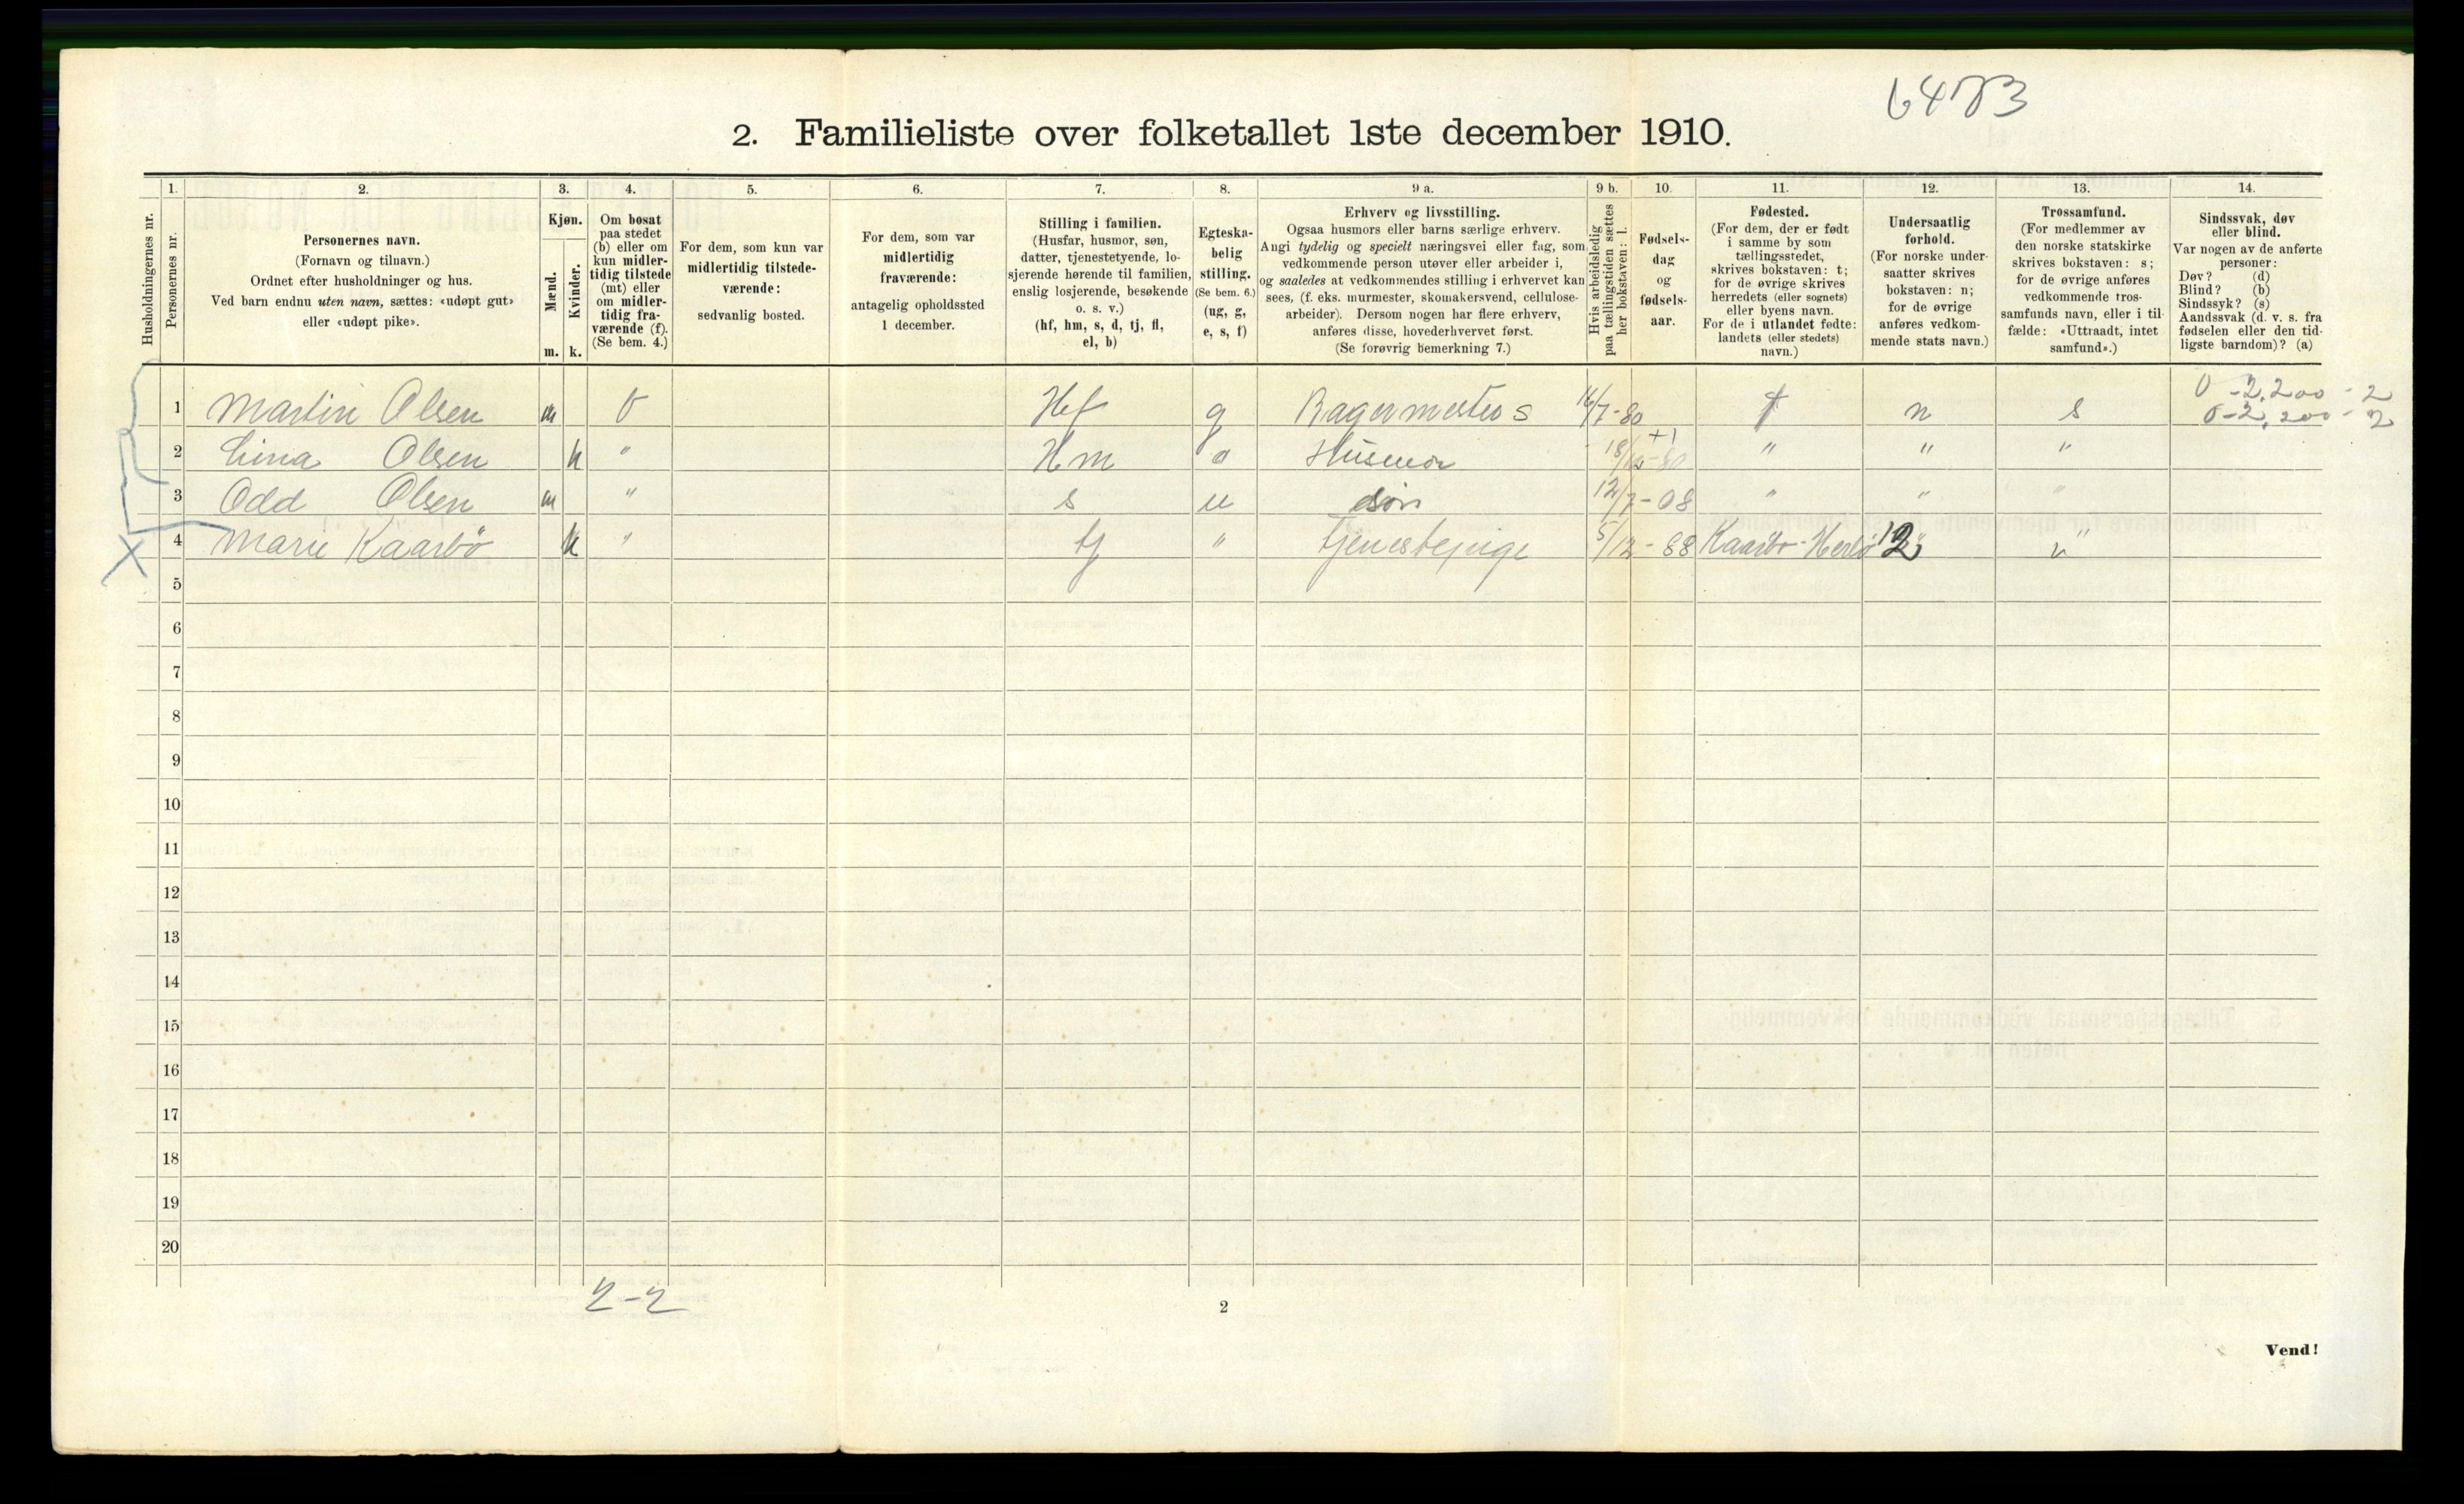 6483
2. Familieliste over folketallet 1ste december 1910.
Husholdningernes nr.
1.
Personernes nr.
2.
Personernes navn.
(Fornavn og tilnavn.)
Ordnet efter husholdninger og hus.
Ved barn endnu uten navn, sættes: «udøpt gut»
eller «udøpt pike».
3.
Kjøn.
Mænd.
Kvinder.
m. k.
4.
Om bosat
paa stedet
(b) eller om
kun midler-
tidig tilstede
(mt) eller
om midler-
tidig fra-
værende (f).
(Se bem. 4.)
5.
For dem, som kun var
midlertidig tilstede-
værende:
sedvanlig bosted.
6.
For dem, som var
midlertidig
fraværende:
antagelig opholdssted
1 december.
7.
Stilling i familien.
(Husfar, husmor, søn,
datter, tjenestetyende, lo-
sjerende hørende til familien,
enslig losjerende, besøkende
o. s. v.)
(hf, hm, s, d, tj, fl,
el, b)
8.
Egteska-
belig
stilling.
(Se bem. 6.)
(ug, g,
e, s, f)
9 a.
Erhverv og livsstilling.
Ogsaa husmors eller barns særlige erhverv.
Angi tydelig og specielt næringsvei eller fag, som
vedkommende person utøver eller arbeider i,
og saaledes at vedkommendes stilling i erhvervet kan
sees, (f. eks. murmester, skomakersvend, cellulose-
arbeider). Dersom nogen har flere erhverv,
anføres disse, hovederhvervet først.
(Se forøvrig bemerkning 7.)
9 b.
Hvis arbeidsledig
paa tællingstiden sættes
her bokstaven: l.
10.
Fødsels-
dag
og
fødsels-
aar.
11.
Fødested.
(For dem, der er født
i samme by som
tællingsstedet,
skrives bokstaven: t;
for de øvrige skrives
herredets (eller sognets)
eller byens navn.
For de i utlandet fødte:
landets (eller stedets)
navn.)
12.
Undersaatlig
forhold.
(For norske under-
saatter skrives
bokstaven: n;
for de øvrige
anføres vedkom-
mende stats navn.)
13.
Trossamfund.
(For medlemmer av
den norske statskirke
skrives bokstaven: s;
for de øvrige anføres
vedkommende tros-
samfunds navn, eller i til-
fælde: «Uttraadt, intet
samfund».)
14.
Sindssvak, døv
eller blind.
Var nogen av de anførte
personer:
Døv? (d)
Blind? (b)
Sindssyk? (s)
Aandssvak (d. v. s. fra
fødselen eller den tid-
ligste barndom)? (a)
0 - 2,200 - 2
1 Martin Olsen m b Hf g Bagermester s 16/7-80 t n s 0 - 2,200 - 2
2 Lina Olsen k " Hm " Husmor " " "
3 Odd Olsen m " s u søn 12/7-08 " " "
4 Marie Kaarbö k " tj " Tjenestepige 5/12-88 Kaarbö-Herlö 12 "
5
6
7
8
9
10
11
12
13
14
15
16
17
18
19
20
2-2
2
Vend!